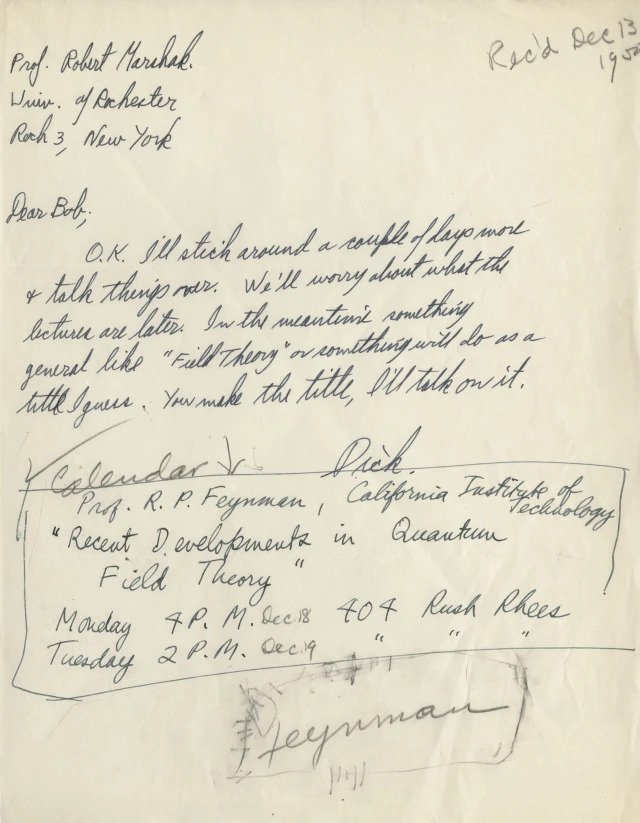 Rec'd Dec 13
1950
Prof. Robert Marshak.
Univ. of Rochester
Roch 3, New York
Dear Bob;
O.K. I'll stick around a couple of days more
& talk things over. We'll worry about what the
lectures are later. In the meantime something
general like "Field Theory" or something will do as a
title I guess. You make the title, I'll talk on it.
Dick.
Calendar
Prof. R. P. Feynman, California Institute of
Technology
"Recent Developments in Quantum
Field Theory"
Monday 4 P. M. Dec 18 404 Rush Rhees
Tuesday 2 P. M. Dec 19 " " "
Feynman